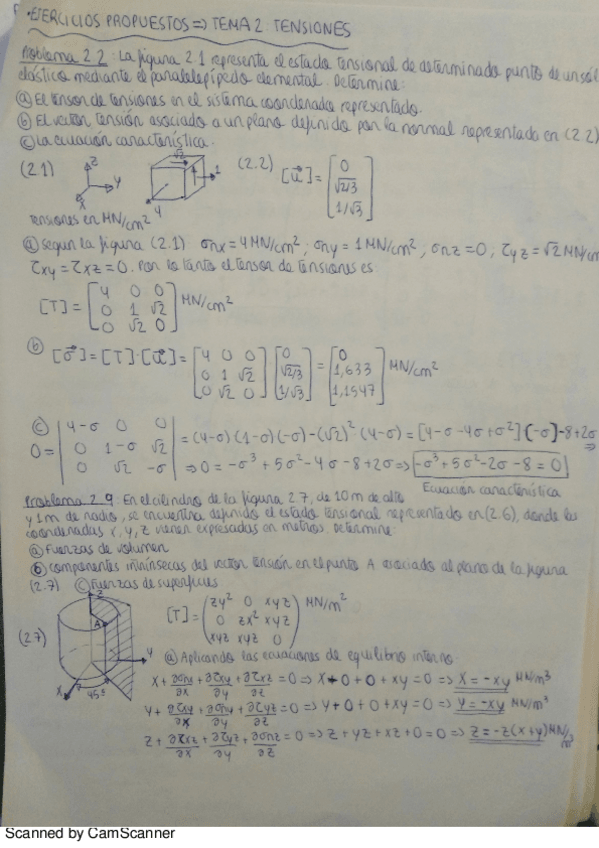 • EJERCICIOS PROPUESTOS => TEMA 2: TENSIONES
Problema 2.2: La figura 2.1 representa el estado tensional de determinado punto de un sól
elástico mediante el paralelepípedo elemental. Determine:
ⓐ El tensor de tensiones en el sistema coordenado representado.
ⓑ El vector tensión asociado a un plano definido por la normal representado en (2.2)
ⓒ La ecuación característica.
(2.1) z y x √2 1 4 (2.2) [u⃗] = [0 √2/3 1/√3]
Tensiones en MN/cm²
ⓐ Según la figura (2.1) σnx = 4 MN/cm²; σny = 1 MN/cm²; σnz = 0; τyz = √2 MN/cm
τxy = τxz = 0. Por lo tanto el tensor de tensiones es:
[T] = [4 0 0; 0 1 √2; 0 √2 0] MN/cm²
ⓑ [σ⃗] = [T]·[u⃗] = [4 0 0; 0 1 √2; 0 √2 0] [0; √2/3; 1/√3] = [0; 1,633; 1,1547] MN/cm²
ⓒ 0 = |4-σ 0 0; 0 1-σ √2; 0 √2 -σ| = (4-σ)(1-σ)(-σ) - (√2)²(4-σ) = [4-σ-4σ+σ²](-σ)-8+2σ =>
=> 0 = -σ³ + 5σ² - 4σ - 8 + 2σ => -σ³ + 5σ² - 2σ - 8 = 0
Ecuación característica
Problema 2.9: En el cilindro de la figura 2.7, de 10m de alto
y 1m de radio, se encuentra definido el estado tensional representado en (2.6), donde las
coordenadas x, y, z vienen expresadas en metros. Determine:
ⓐ Fuerzas de volumen
ⓑ Componentes intrínsecas del vector tensión en el punto A asociado al plano de la figura
(2.7) ⓒ Fuerzas de superficies
(2.7) z A y x 45° [T] = (zy² 0 xyz; 0 zx² xyz; xyz xyz 0) MN/m²
ⓐ Aplicando las ecuaciones de equilibrio interno:
X + ∂σnx/∂x + ∂τxy/∂y + ∂τxz/∂z = 0 => X + 0 + 0 + xy = 0 => X = -xy MN/m³
Y + ∂τxy/∂x + ∂σny/∂y + ∂τyz/∂z = 0 => Y + 0 + 0 + xy = 0 => Y = -xy MN/m³
Z + ∂τxz/∂x + ∂τyz/∂y + ∂σnz/∂z = 0 => Z + yz + xz + 0 = 0 => Z = -z(x+y) MN/m³
Scanned by CamScanner